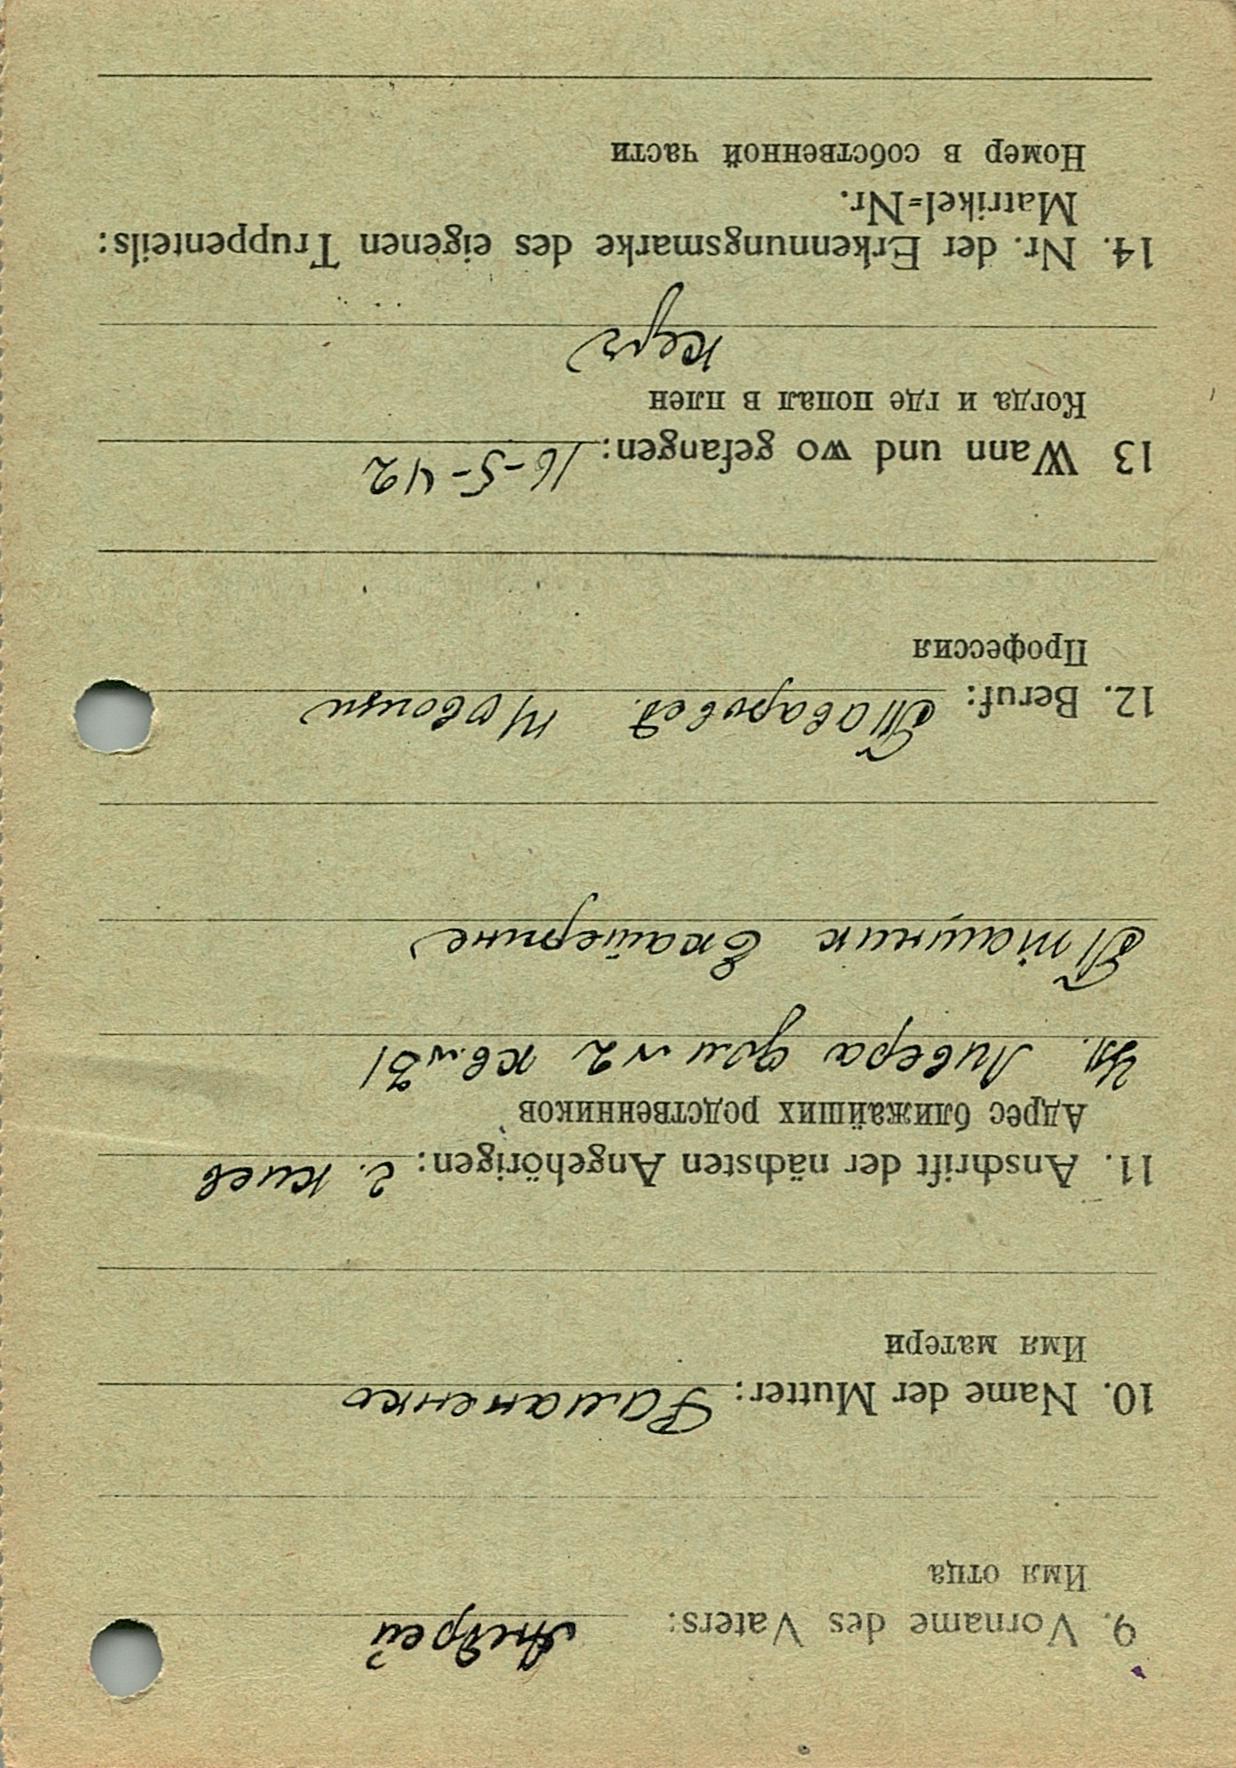 9. Vorname des Vaters: Андрей
Имя отца
10. Name der Mutter: Раманенко
Имя матери
11. Anschrift der nächsten Angehörigen: г. Киев
Адрес ближайших родственников
Ул. Ливера дом №2 кв. №31
Пташник Екатерине
12. Beruf: Товаровед.
Профессия
13 Wann und wo gefangen: 16-5-42
Когда и где попал в плен
Керч
14. Nr. der Erkennungsmarke des eigenen Truppenteils:
Matrikel=Nr.
Номер в собственной части